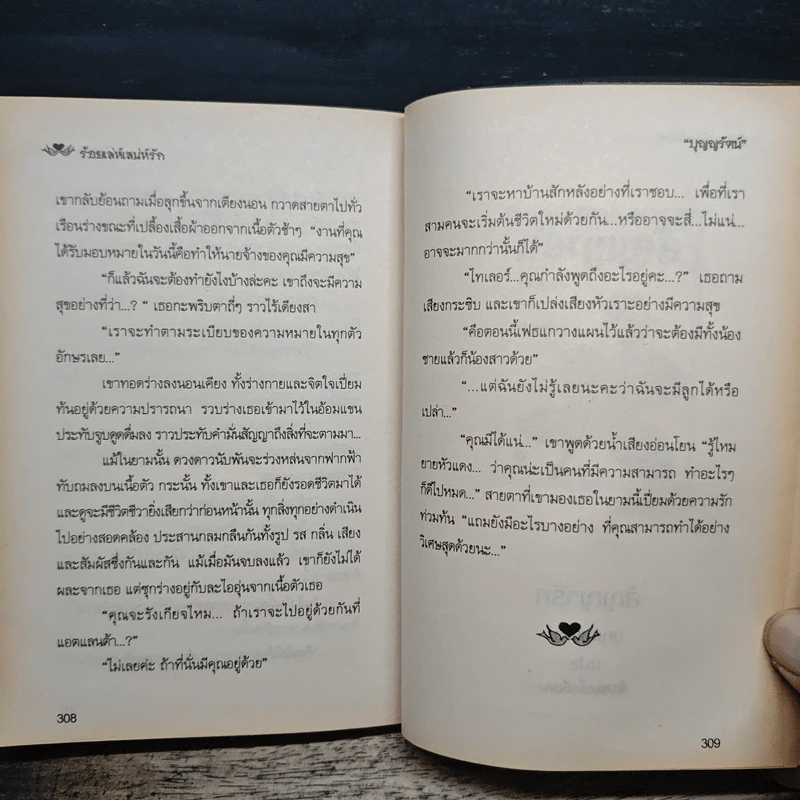 ร้อยเล่ห์เสน่ห์รัก
เขากลับย้อนถามเมื่อลุกขึ้นจากเตียงนอน กวาดสายตาไปทั่ว
เรือนร่างขณะที่เปลื้องเสื้อผ้าออกจากเนื้อตัวช้าๆ “งานที่คุณ
ได้รับมอบหมายในวันนี้คือทำให้นายจ้างของคุณมีความสุข”
“ก็แล้วฉันจะต้องทำยังไงบ้างล่ะคะ เขาถึงจะมีความ
สุขอย่างที่ว่า...? “ เธอกะพริบตาถี่ๆ ราวไร้เดียงสา
“เราจะทำตามระเบียบของความหมายในทุกตัว
อักษรเลย...”
เขาทอดร่างลงนอนเคียง ทั้งร่างกายและจิตใจเปี่ยม
ท้นอยู่ด้วยความปรารถนา รวบร่างเธอเข้ามาไว้ในอ้อมแขน
ประทับจูบดูดดื่มลง ราวประทับคำมั่นสัญญาถึงสิ่งที่จะตามมา...
แม้ในยามนั้น ดวงดาวนับพันจะร่วงหล่นจากฟากฟ้า
ทับถมลงบนเนื้อตัว กระนั้น ทั้งเขาและเธอก็ยังรอดชีวิตมาได้
และดูจะมีชีวิตชีวายิ่งเสียกว่าก่อนหน้านั้น ทุกสิ่งทุกอย่างดำเนิน
ไปอย่างสอดคล้อง ประสานกลมกลืนกันทั้งรูป รส กลิ่น เสียง
และสัมผัสซึ่งกันและกัน แม้เมื่อมันจบลงแล้ว เขาก็ยังไม่ได้
ผละจากเธอ แต่ซุกร่างอยู่กับละไออุ่นจากเนื้อตัวเธอ
“คุณจะรังเกียจไหม... ถ้าเราจะไปอยู่ด้วยกันที่
แอตแลนต้า...?”
“ไม่เลยค่ะ ถ้าที่นั่นมีคุณอยู่ด้วย”
308
“บุญญรัตน์”
“เราจะหาบ้านสักหลังอย่างที่เราชอบ... เพื่อที่เรา
สามคนจะเริ่มต้นชีวิตใหม่ด้วยกัน...หรืออาจจะสี่...ไม่แน่...
อาจจะมากกว่านั้นก็ได้”
“ไทเลอร์...คุณกำลังพูดถึงอะไรอยู่คะ...?” เธอถาม
เสียงกระซิบ และเขาก็เปล่งเสียงหัวเราะอย่างมีความสุข
“คือตอนนี้เฟธแกวางแผนไว้แล้วว่าจะต้องมีทั้งน้อง
ชายแล้วก็น้องสาวด้วย”
“...แต่ฉันยังไม่รู้เลยนะคะว่าฉันจะมีลูกได้หรือ
เปล่า...”
“คุณมีได้แน่...” เขาพูดด้วยน้ำเสียงอ่อนโยน “รู้ไหม
ยายหัวแดง... ว่าคุณน่ะเป็นคนที่มีความสามารถ ทำอะไรๆ
ก็ดีไปหมด...” สายตาที่เขามองเธอในยามนี้เปี่ยมด้วยความรัก
ท่วมท้น “แถมยังมีอะไรบางอย่าง ที่คุณสามารถทำได้อย่าง
วิเศษสุดด้วยนะ...”
309